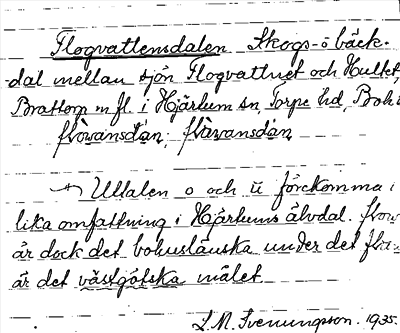 Flogvattensdalen Skogs- o bäck-
dal mellan sjön Flogvattnet och Hultet,
Brattorp m fl. i Hjärtum sn, Torpe hd, Boh
flòvansdàn; flàvansdàn
Uttalen o och
förekomma i
lika omfattning i Hjärtums älvdal. flov
är dock det bohuslänska under det fla
är det västgötska målet
L. M. Svenungsson. 1935